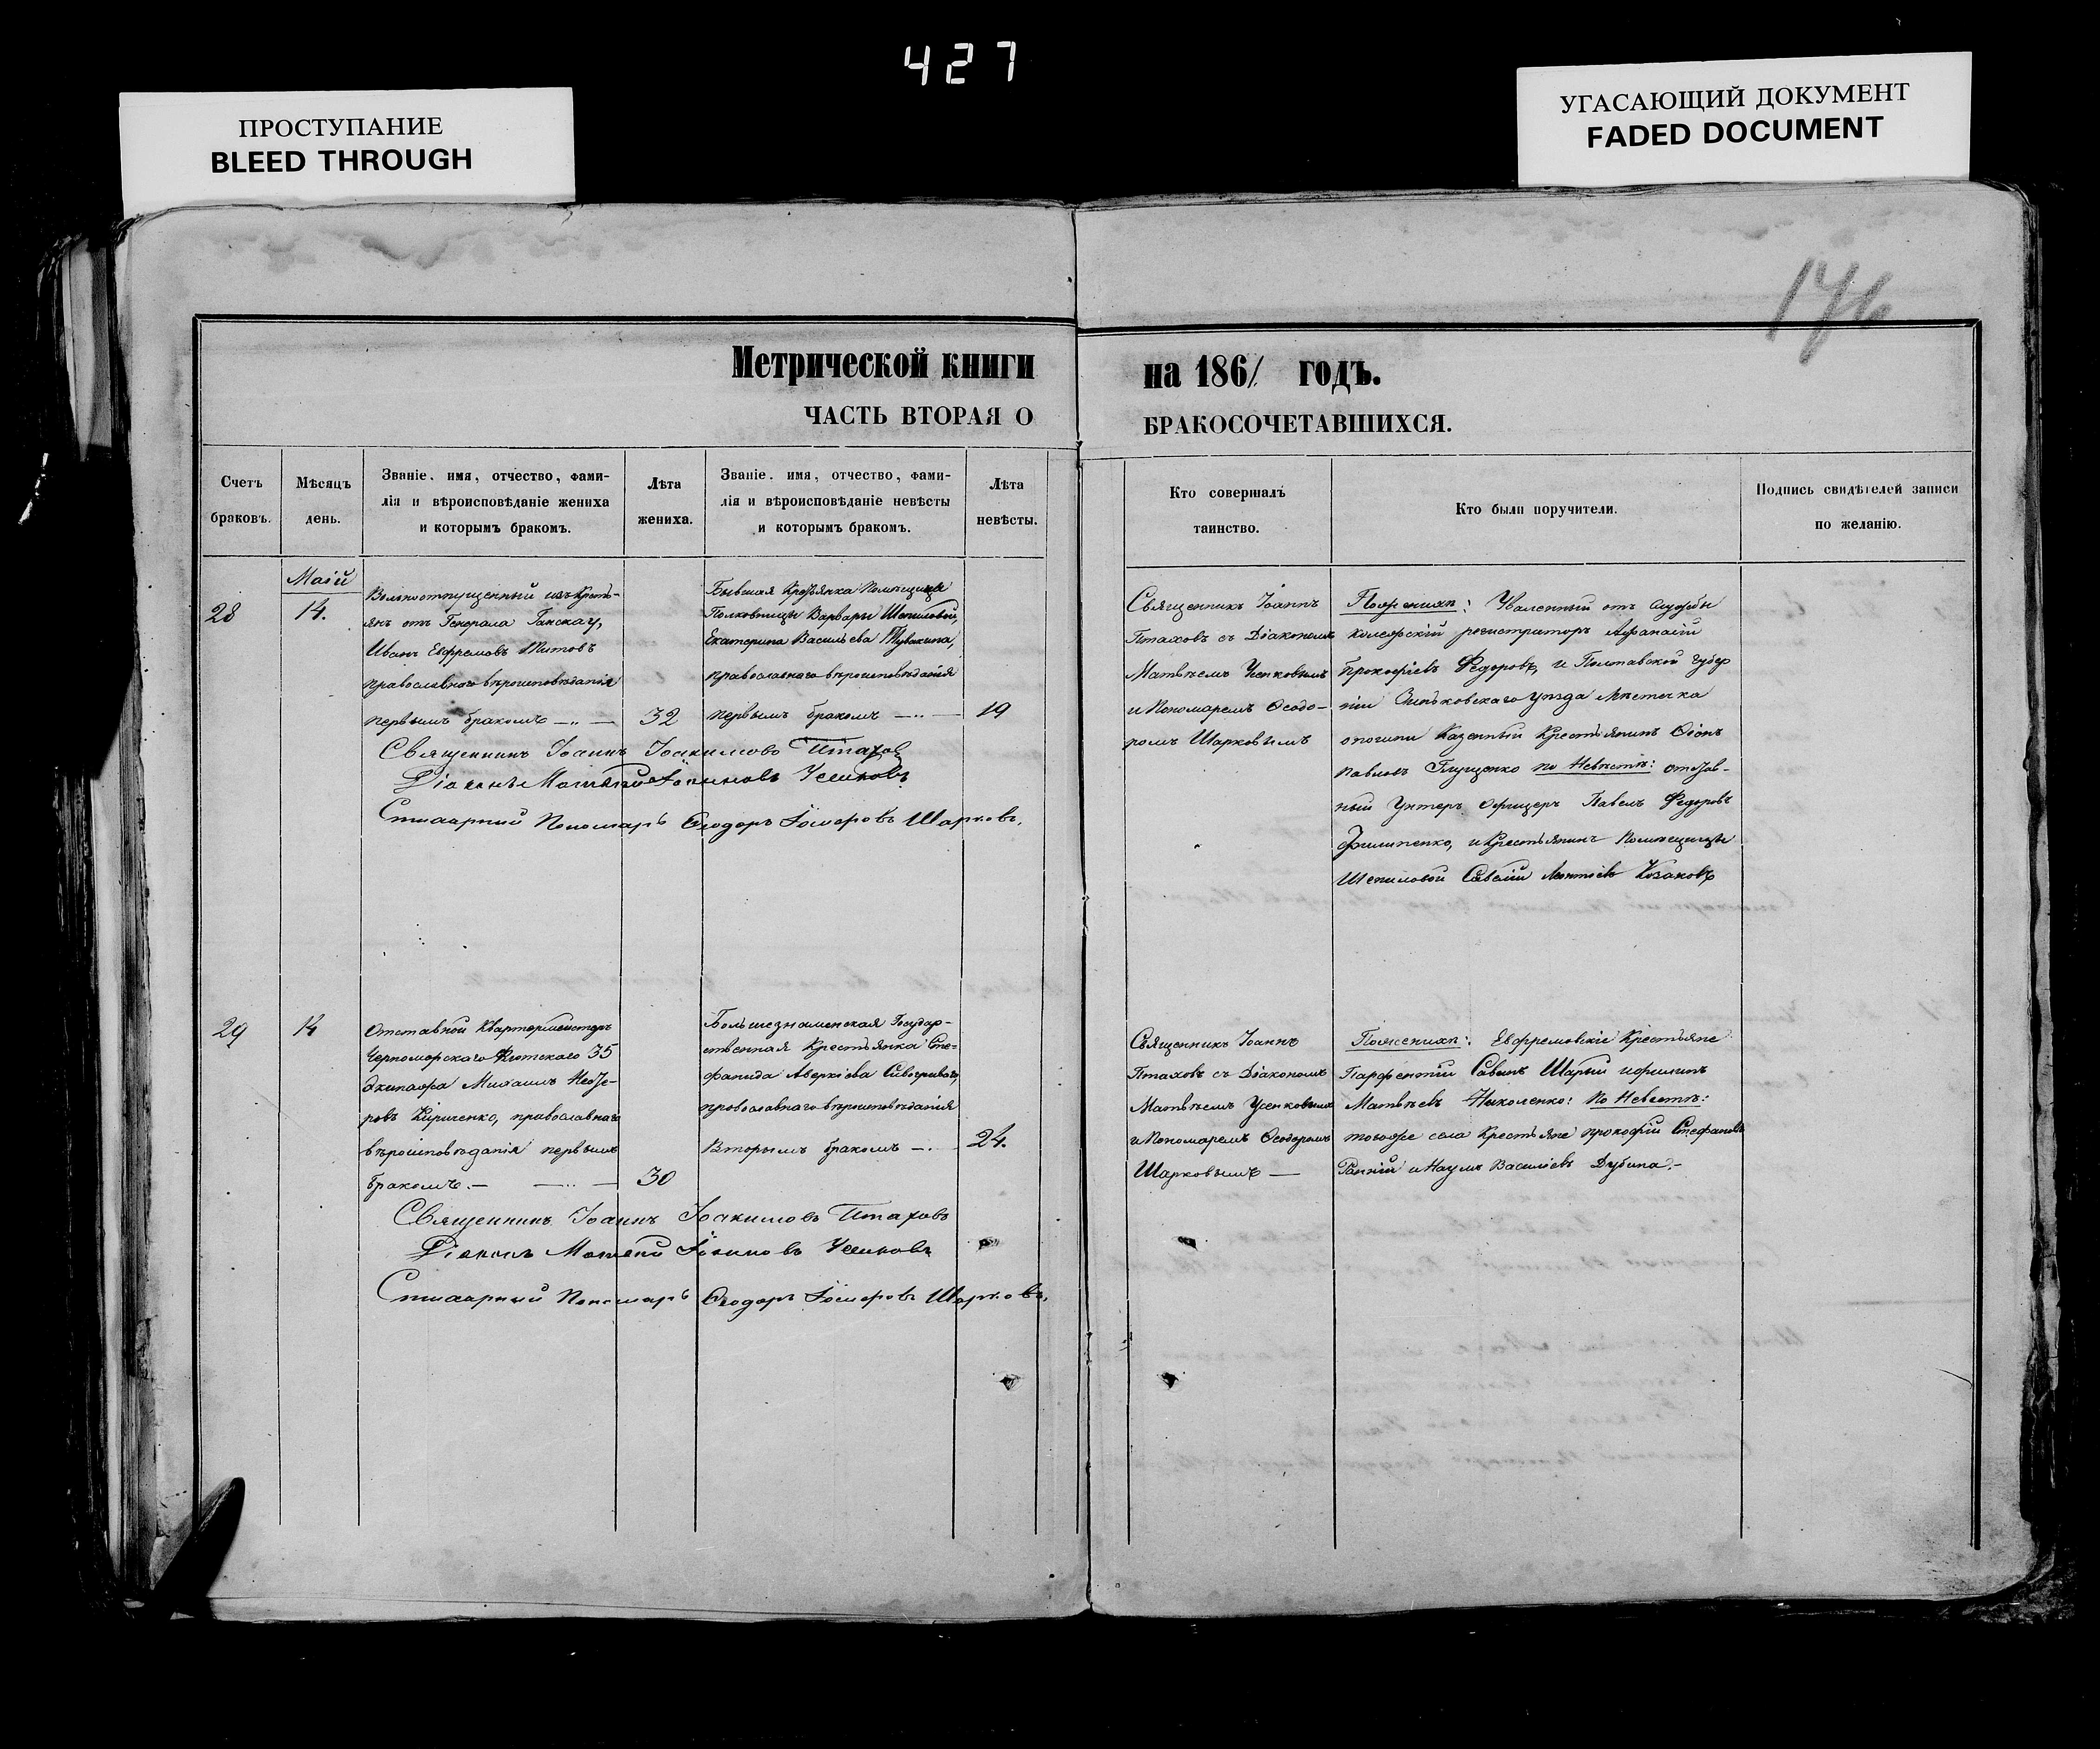 427
ПРОСТУПАНИЕ
BLEED THROUGH
УГАСАЮЩИЙ ДОКУМЕНТ
FADED DOCUMENT
176
Метрической книги на 1861 годъ.
ЧАСТЬ ВТОРАЯ О БРАКОСОЧЕТАВШИХСЯ.
Счетъ
браковъ.
Мѣсяцъ
день.
Званіе, имя, отчество, фами-
лія и вѣроисповѣданіе жениха
и которымъ бракомъ.
Лѣта
жениха.
Званіе, имя, отчество, фами-
лія и вѣроисповѣданіе невѣсты
и которымъ бракомъ.
Лѣта
невѣсты.
Кто совершалъ
таинство.
Кто были поручители.
Подпись свидѣтелей записи
по желанію.
28
Маій
14.
Вольноотпущенный изъ Кресть-
янъ отъ Генерала
Иванъ Евфремовъ Титовъ
православнаго вѣроисповѣданія
первымъ бракомъ
32
Бывшая Крестьянка Помещицы
Полковницы Варвары Шепиловой,
Екатерина Васильева
православнаго вѣроисповѣданія
первымъ бракомъ
19
Священникъ Іоаннъ
Птаховъ съ Діакономъ
Матвѣемъ Усенковымъ
и Пономаремъ Ѳеодо-
ромъ Шарковымъ
По женихѣ: Уволенный отъ службы
колежскій регистраторъ Афанасій
Прокофіевъ Федоровъ, и Полтавской губер
ніи Зиньковскаго уѣзда Мѣстечка
Опошни Казенный Крестьянинъ
Павловъ Глущенко по Невѣстѣ: отстав-
ный Унтеръ Офицеръ Павелъ Федоровъ
Филипенко, и Крестьянинъ Помещицы
Шепиловой Савелій Леонтіевъ Козаковъ
Священникъ Іоаннъ Іоакимовъ Птаховъ
Діаконъ Матвѣй Усенковъ
Стихарный Пономарь Ѳеодоръ Шарковъ.
29
14
Отставной Квартермейстеръ
Черноморскаго Флотскаго 35
экипажа Михаилъ
ровъ Кириченко, православнаго
вѣроисповѣданія первымъ
бракомъ.
30
Большезнаменская Государ-
ственная Крестьянка Сте-
фанида Аверкіева
православнаго вѣроисповѣданія
Вторымъ бракомъ
24.
Священникъ Іоаннъ
Птаховъ съ Діакономъ
Матвѣемъ Усенковымъ
и Пономаремъ Ѳеодоромъ
Шарковымъ
По женихѣ: Евфремовскіе Крестьяне
Парфентій Савинъ Шарый и Филипъ
Матвѣевъ Николенко: по Невестѣ:
того же села Крестьяне Прокофій Стефановъ
и Наумъ Василіевъ Дубина.
Священникъ Іоаннъ Іоакимовъ Птаховъ
Діаконъ Матвѣй Усенковъ
Стихарный Пономарь Ѳеодоръ Шарковъ.